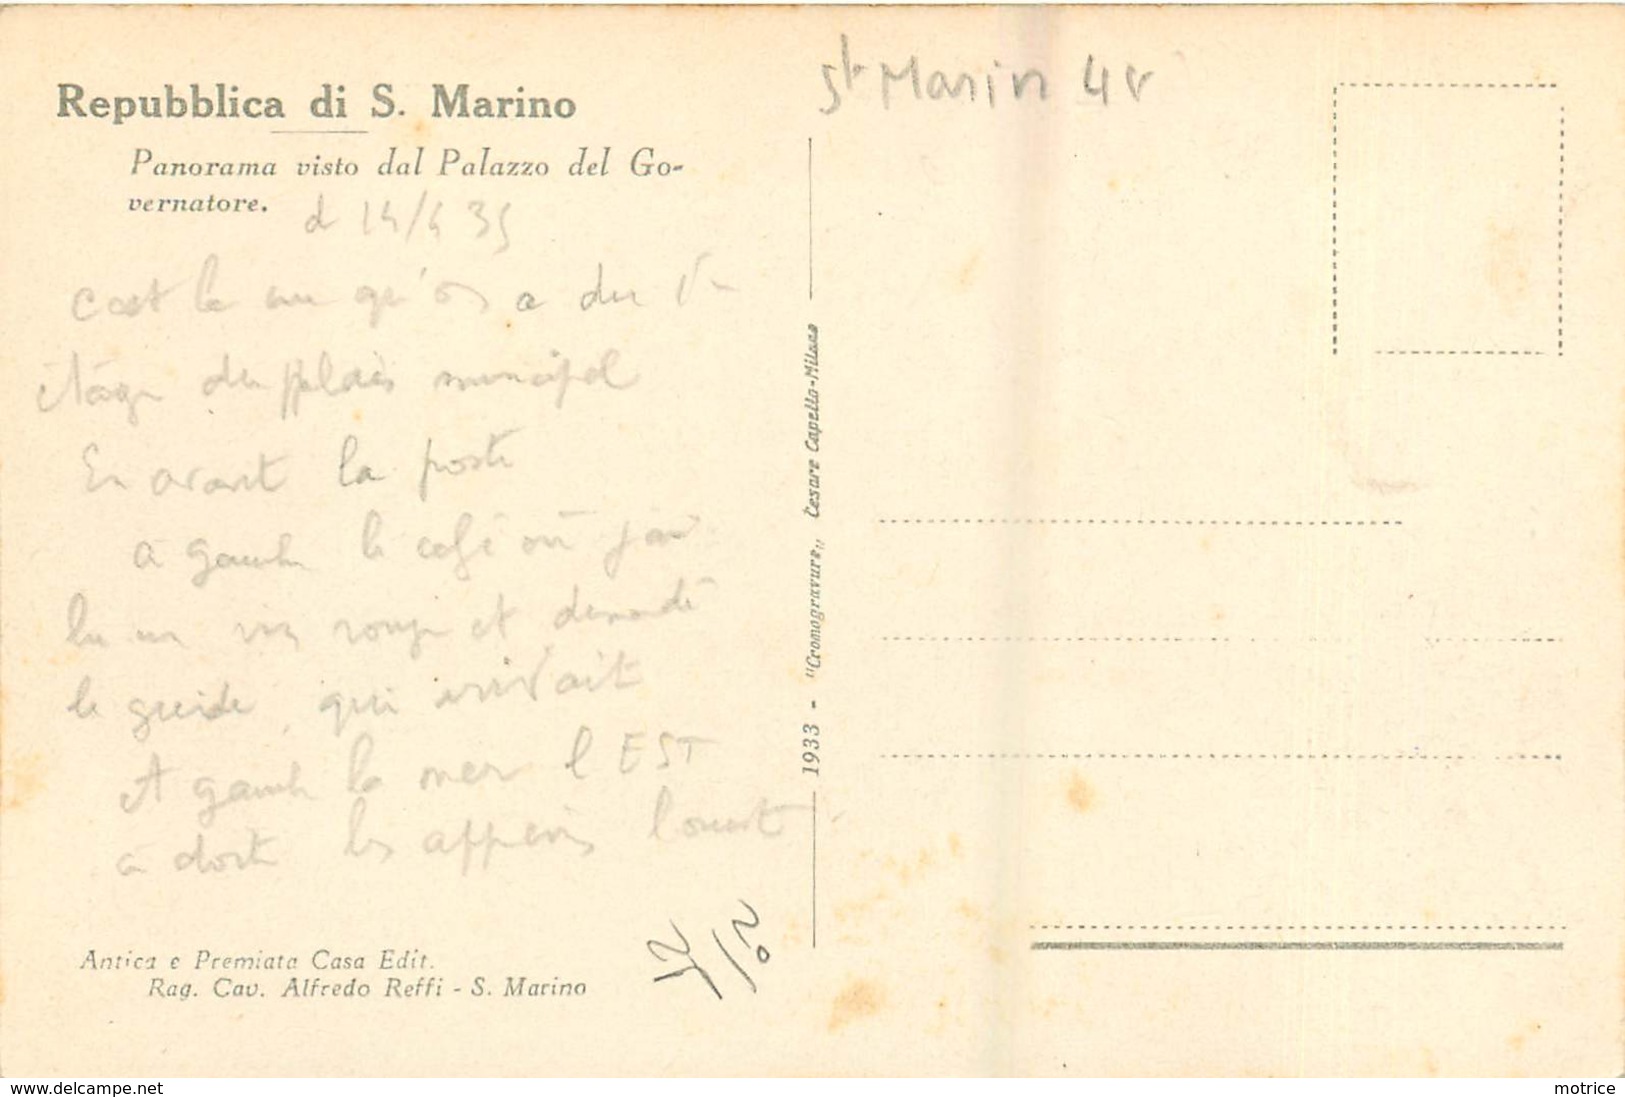 Repubblica di S. Marino
Panorama visto dal Palazzo del Go-
vernatore.
d 14/4 35
c'est la vue qu'on a du
étage du palais municipal
En avant la poste
à gauche le café où j'ai
bu un vin rouge et demandé
le guide, qui arrivait
A gauche la mer l'EST
à droite les appenins l'ouest
Antica e Premiata Casa Edit.
Rag. Cav. Alfredo Reffi - S. Marino
1933 - "Cromogravure„ Cesare Capello-Milano
St Marin 4
delcampe.net
motrice